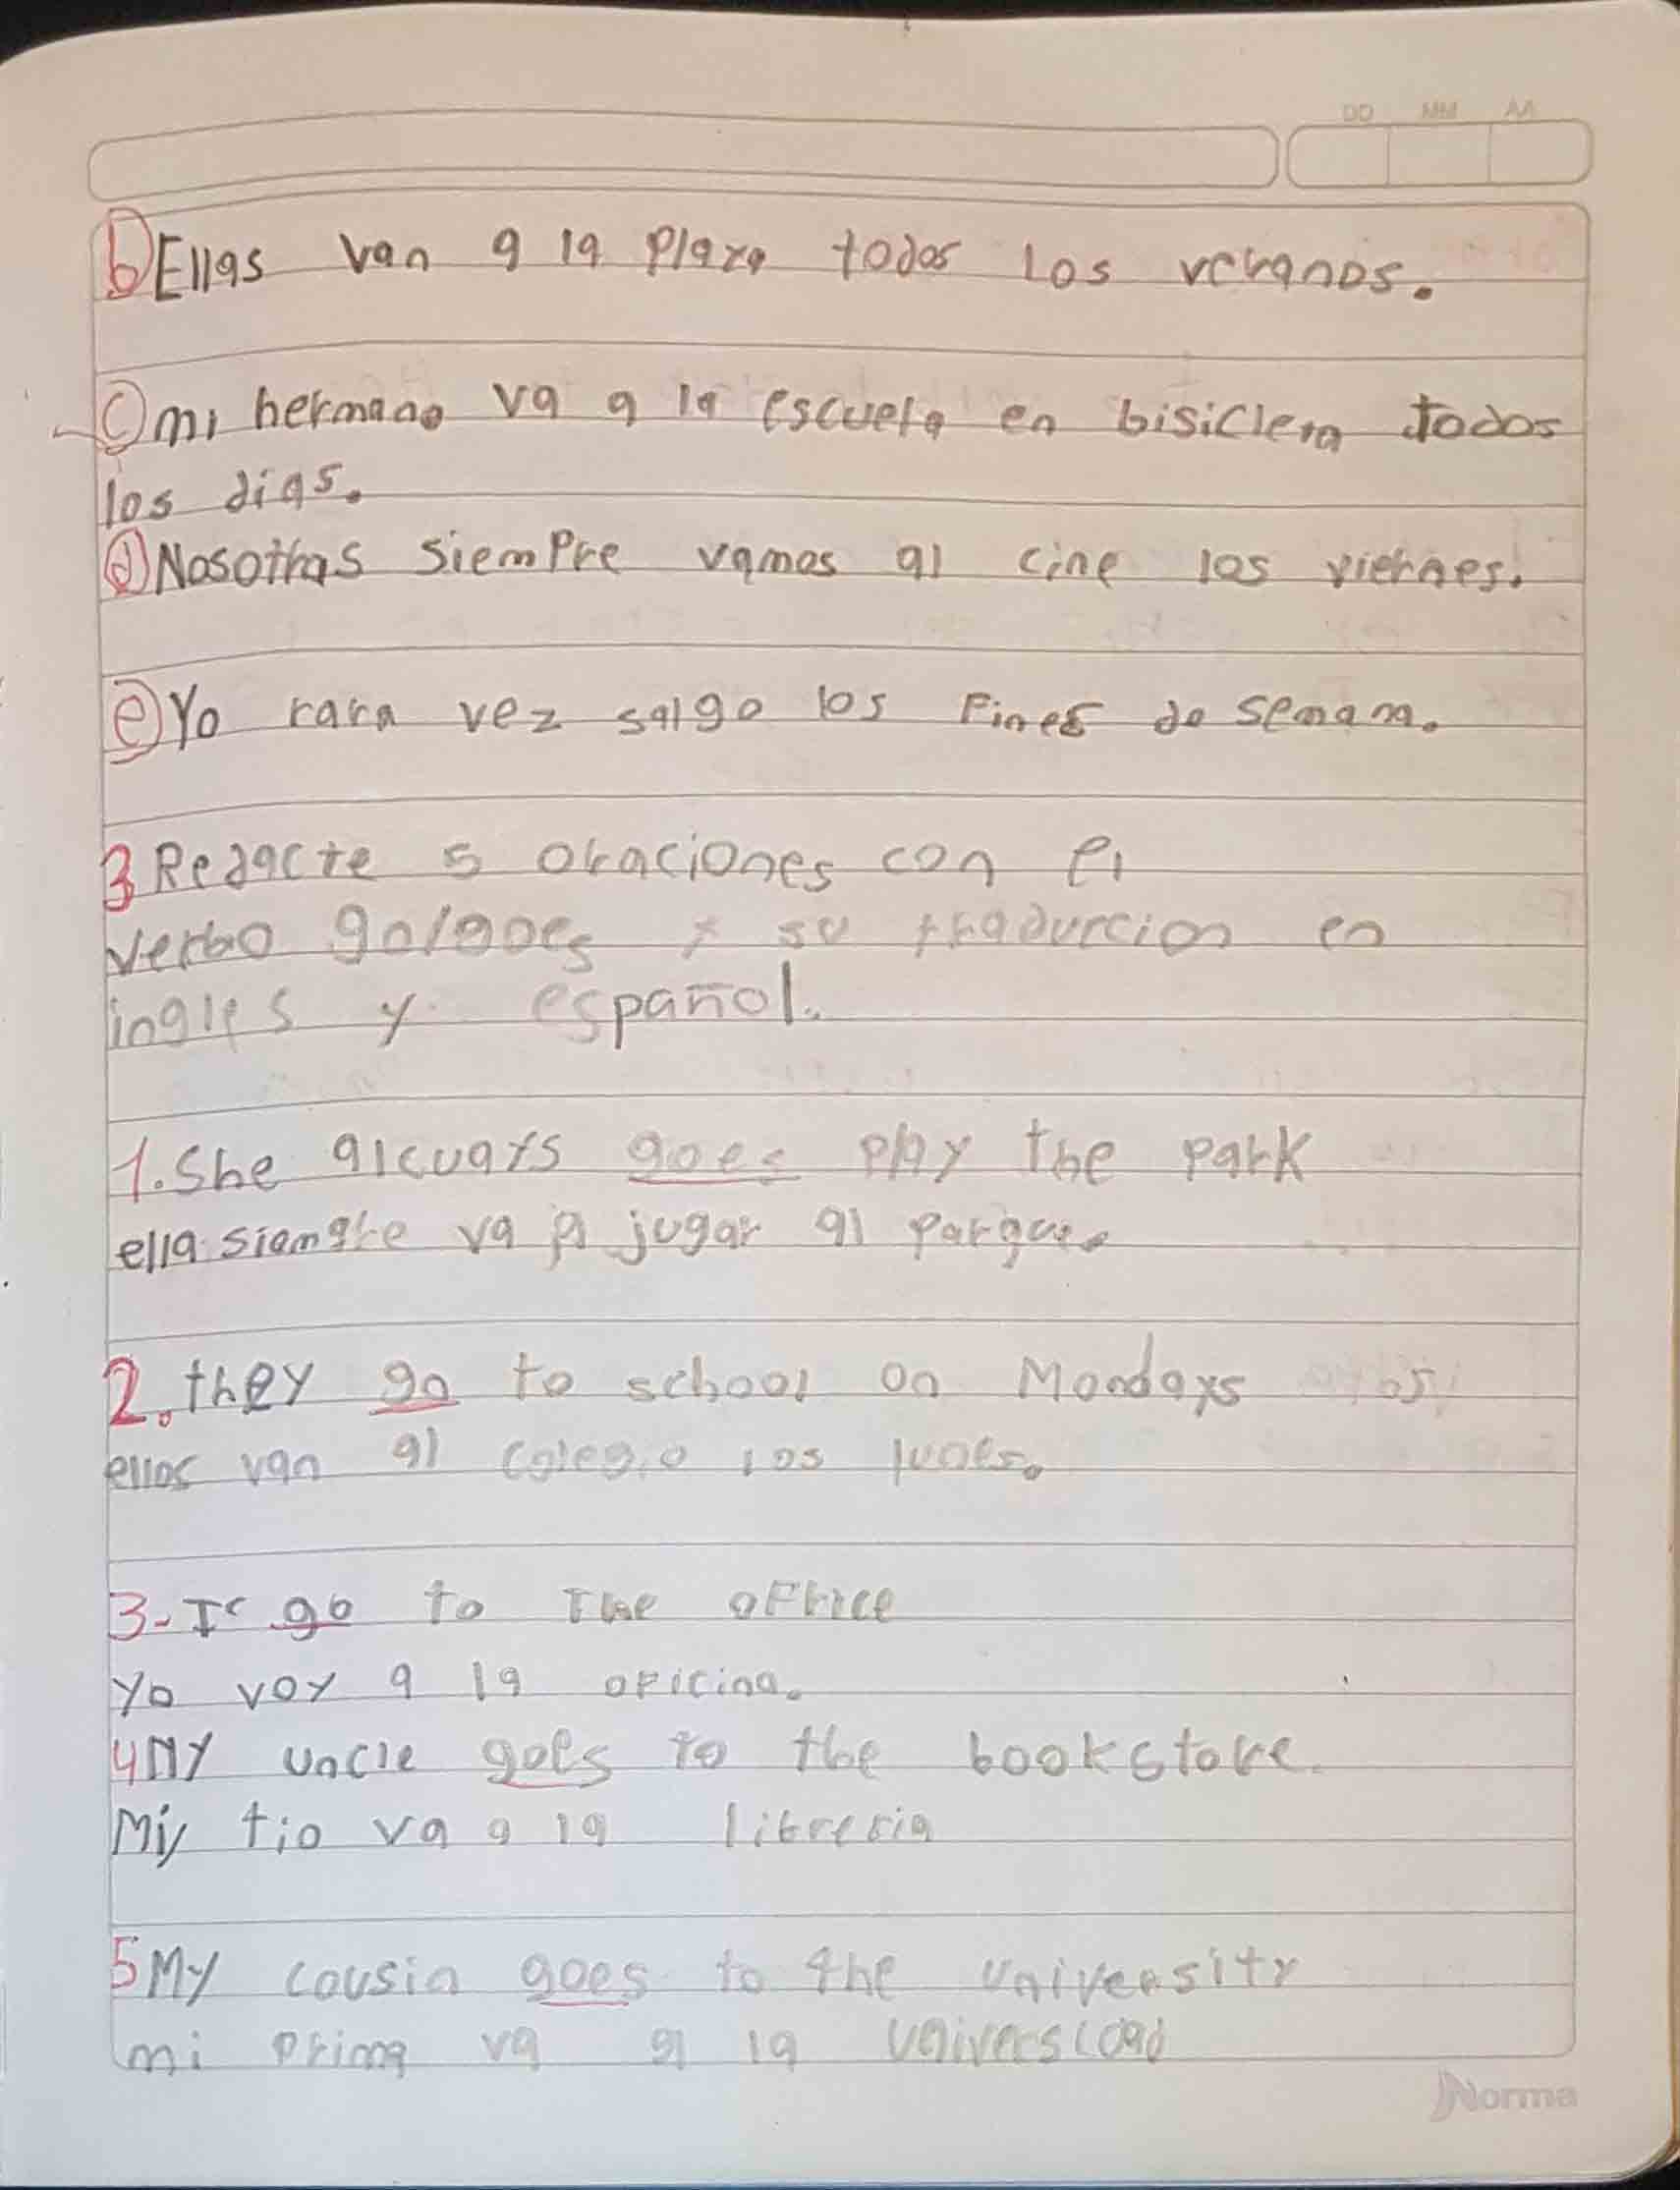 DD MM AA
b) Ellas van a la Plaza todos los veranos.
c) mi hermano va a la escuela en bisicleta todos
los dias.
d) Nosotras siempre vamos al cine los viernes.
e) Yo rara vez salgo los Fines de semana.
3 Redacte 5 oraciones con el
verbo go/goes y su traduccion en
ingles y español.
1. She always goes play the park
ella siempre va a jugar al parque.
2. they go to school on Mondays
ellos van al colegio los lunes.
3- I go to The office
yo voy a la oficina.
4 My uncle goes to the bookstore.
Mi tio va a la libreria
5 My cousin goes to the university
mi prima va a la universidad
Norma